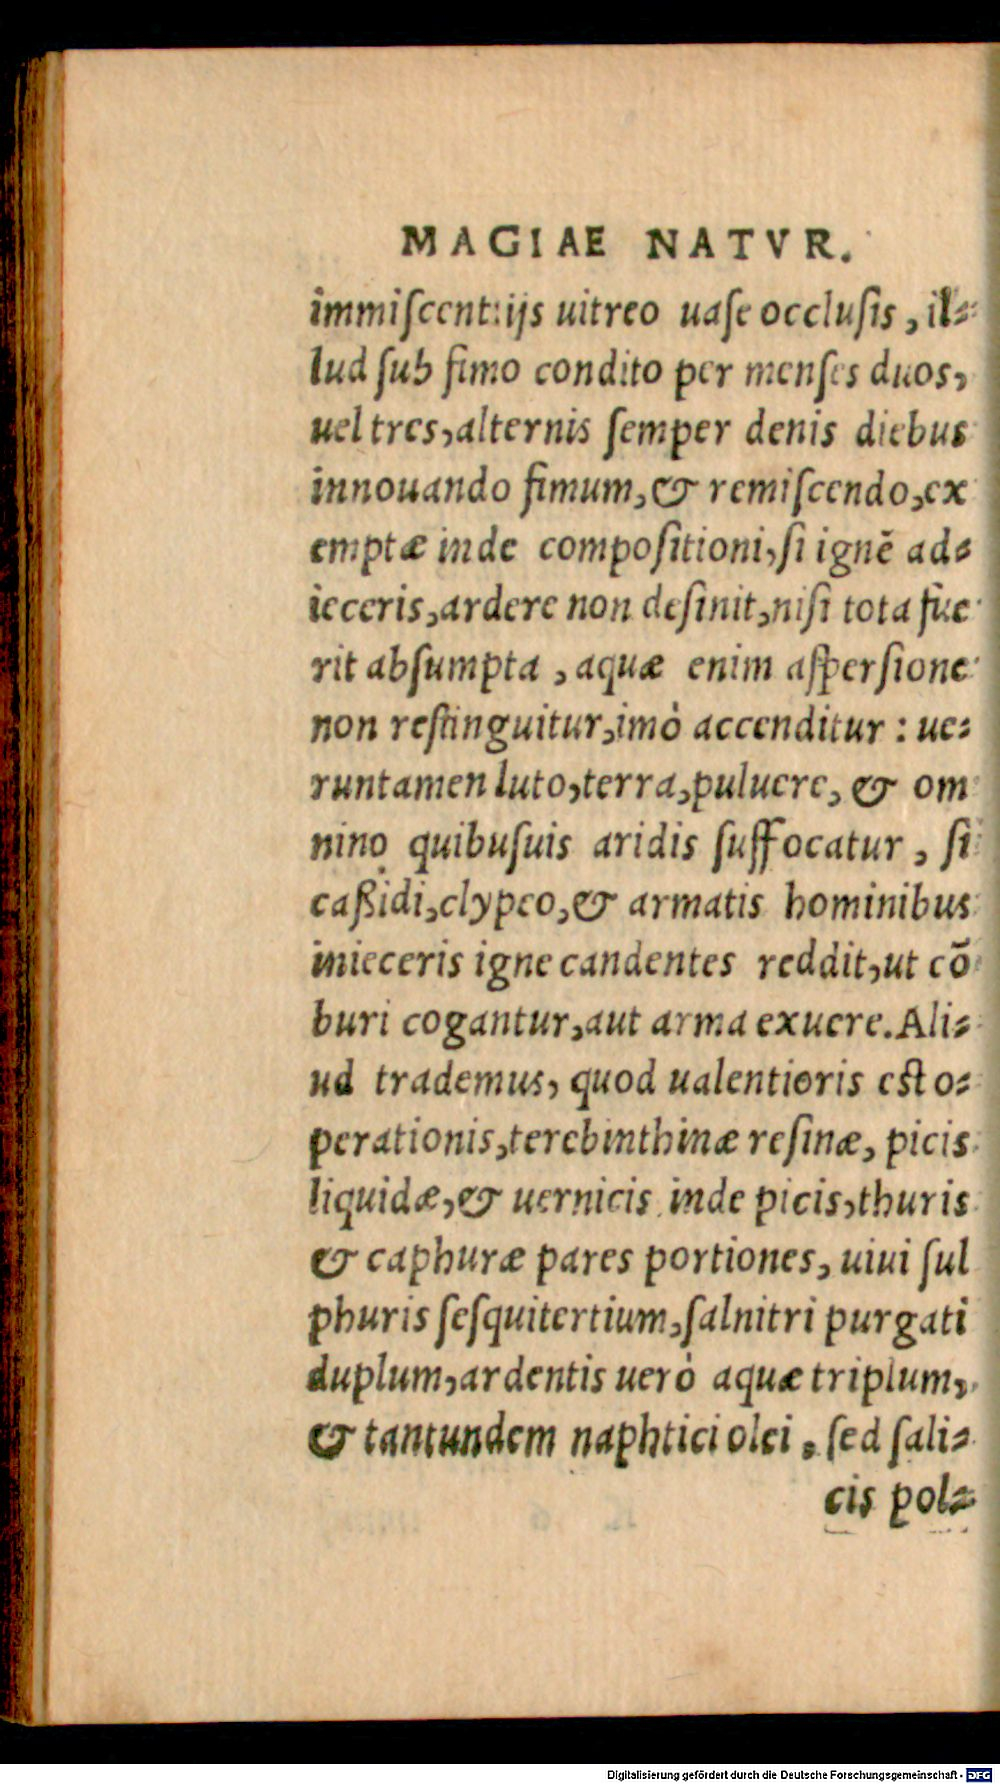 MAGIAE NATVR.
immiſcent:ijs uitreo uaſe occluſis, il⸗
lud ſub fimo condito per menſes duos,
uel tres, alternis ſemper denis diebus
innouando fimum, & remiſcendo, ex
emptæ inde compoſitioni, ſi ignē ad⸗
ieceris, ardere non deſinit, niſi tota fue
rit abſumpta, aquæ enim aſperſione
non reſtinguitur, imò accenditur: ue⸗
runtamen luto, terra, puluere, & om
nino quibuſuis aridis ſuffocatur, ſi
caßidi, clypeo, & armatis hominibus
inieceris igne candentes reddit, ut cō
buri cogantur, aut arma exuere. Ali⸗
ud trademus, quod ualentioris est o⸗
perationis, terebinthinæ reſinæ, picis
liquidæ, & uernicis inde picis, thuris
& caphuræ pares portiones, uiui ſul
phuris ſeſquitertium, ſalnitri purgati
duplum, ardentis uerò aquæ triplum,
& tantundem naphtici olei, ſed ſali⸗
cis pol⸗
Digitalisierung gefördert durch die Deutsche Forschungsgemeinschaft - DFG